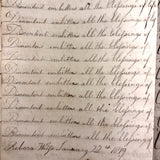 Discontent embitters all the blessings of
Discontent embitters all the blessings of
Discontent embitters all the blessings of
Discontent embitters all the blessings of
Discontent embitters all the blessings of
Discontent embitters all the blessings of
Discontent embitters all the blessings of
Discontent embitters all the blessings of
Discontent embitters all the blessings of
Discontent embitters all the blessings of
Rebecca January 22nd